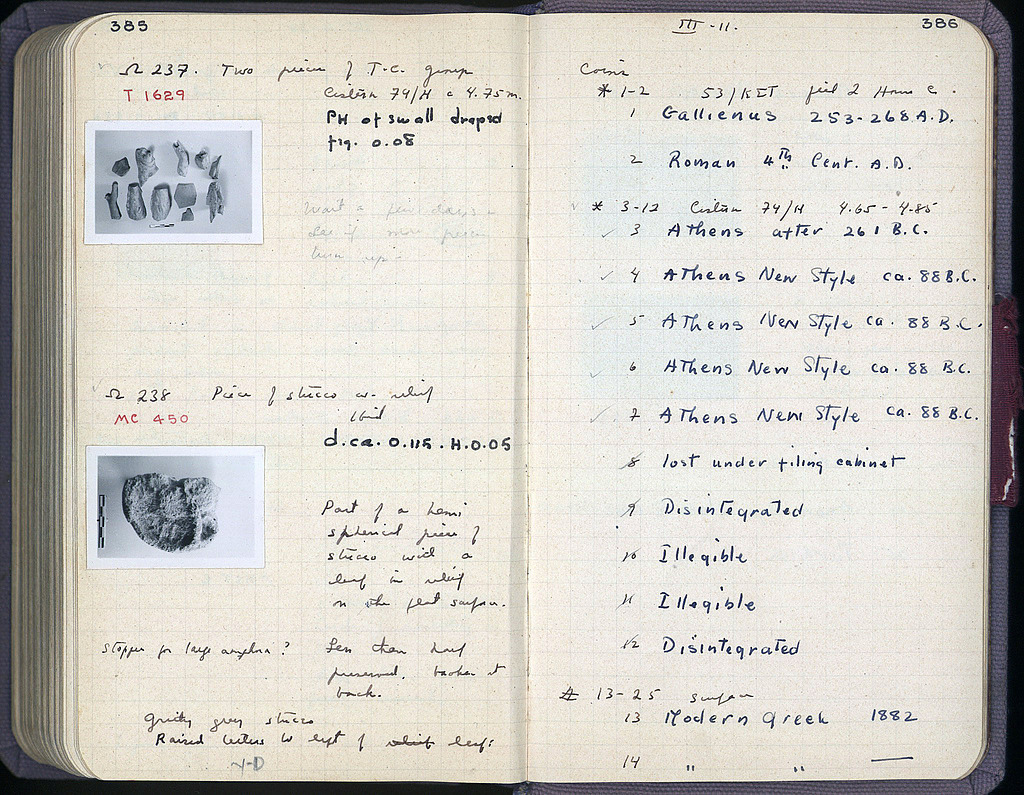 385
Ω 237. Two pieces of T.C. group
T 1629
Cistern 74/H c 4.75 m.
PH of small draped
fig. 0.08
Wait a few days &
see if more pieces
turn up -
Ω 238 Piece of stucco w. relief
MC 450
d. ca. 0.115 . H. 0.05
Part of a hemi
spherical piece of
stucco with a
leaf in relief
on the flat surface.
Stopper for large amphora?
Less than half
preserved, broken at
back.
Gritty grey stucco
Raised letters to left of relief leaf:
386
III - 11.
Coins
* 1-2 53/ΚΣΤ
1 Gallienus 253-268 A.D.
2 Roman 4th Cent. A.D.
* 3-12 Cistern 74/H 4.65 - 4.85
3 Athens after 261 B.C.
4 Athens New Style ca. 88 B.C.
5 Athens New Style ca. 88 B.C.
6 Athens New Style ca. 88 B.C.
7 Athens New Style ca. 88 B.C.
8 lost under filing cabinet
9 Disintegrated
10 Illegible
11 Illegible
12 Disintegrated
* 13-25 surface
13 Modern Greek 1882
14 " " —